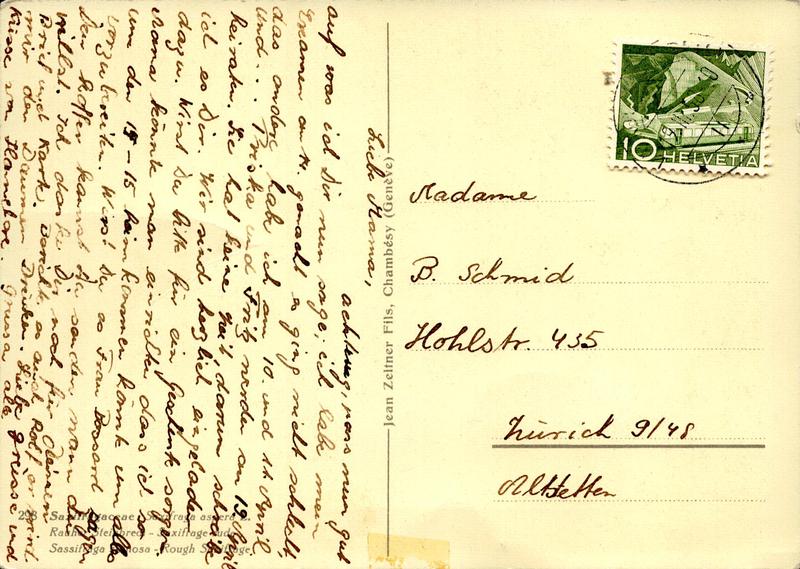 Liebe Mama,
achtung, pass nun gut
auf was ich Dir nun sage; ich habe mein
Examen am 4. gemacht es ging nicht schlecht,
das andere habe ich am 10. und 11. April
und... Priska und Fritz werden am 19. April
heiraten. Sie hat keine Zeit darum schreibe
ich es Dir. Wir sind herzlich eingeladen
dazu. Wirst Du bitte für ein Geschenk sorgen.
Mama könnte man einrichten dass ich so
um den 15-15 heimkommen könnte um alles
vorzubereiten. Wirst Du es Frau
Den Koffer kannst Du senden wann Du
willst. Ich danke Dir noch für Deinen
Brief und Karte. Berichte es auch Rolf, er wird
mir den Daumen Drücken. Liebe Grüsse und
Küsse von Hanelore. Grüsse alle
Jean Zeltner Fils, Chambésy (Genève)
10 HELVETIA
Madame
B. Schmid
Hohlstr. 435
Zürich 9/48
Altstetten
Saxifragaceae - Saxifraga aspera L.
Rauher Steinbrech - Saxifrage rude
Sassifraga - Rough Saxifrage